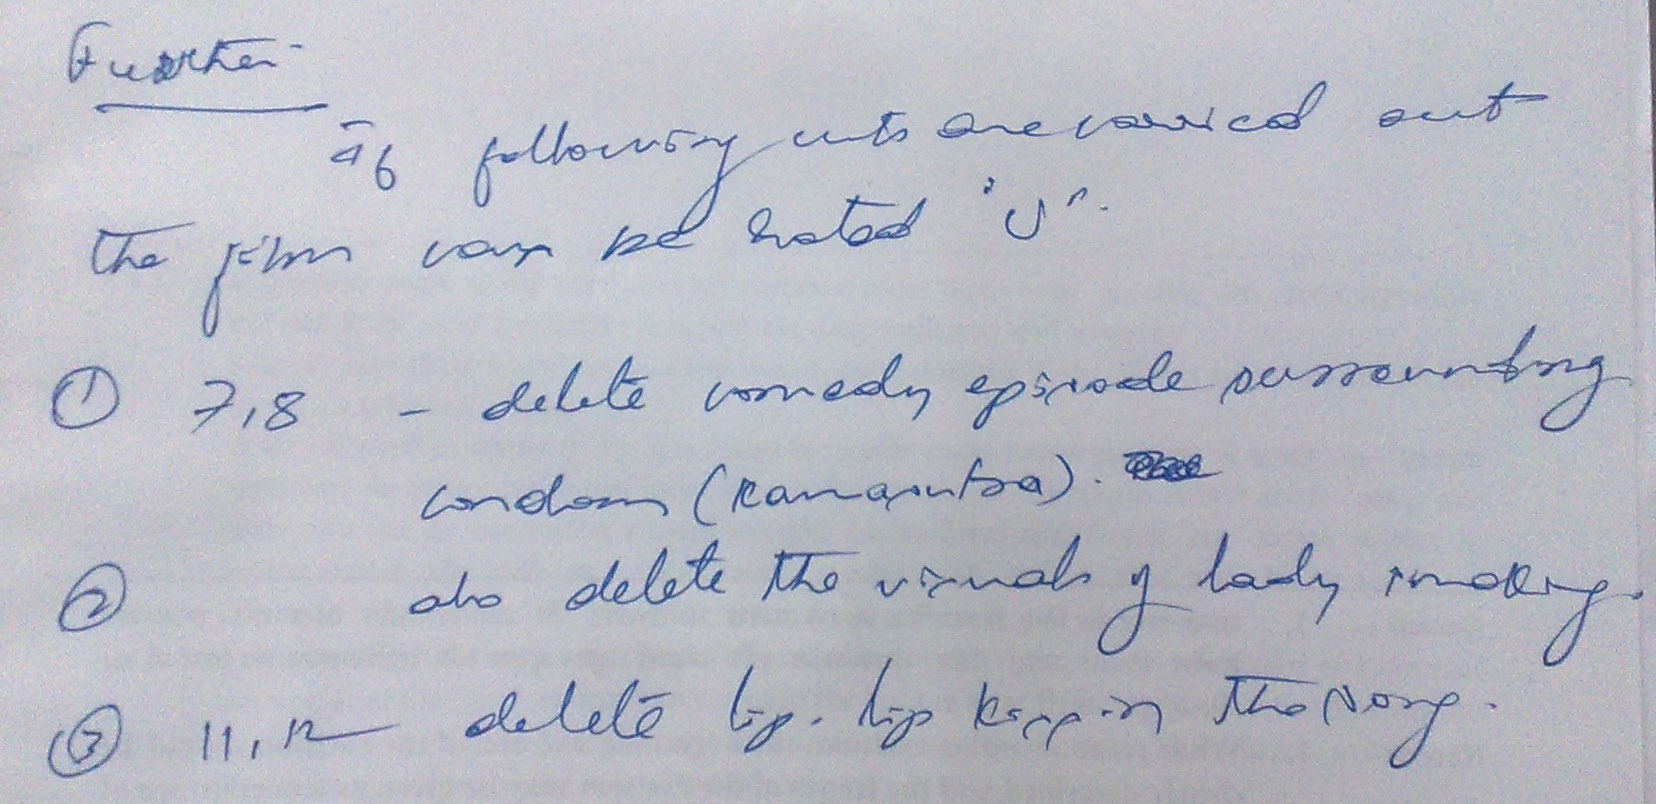 Further
If following cuts are carried out
the film can be rated "U".
① 7,8 - delete comedy episode surrounding
condom (Kamasutra).
② also delete the visuals of lady smoking.
③ 11,12 - delete lip-lip kiss in the song.